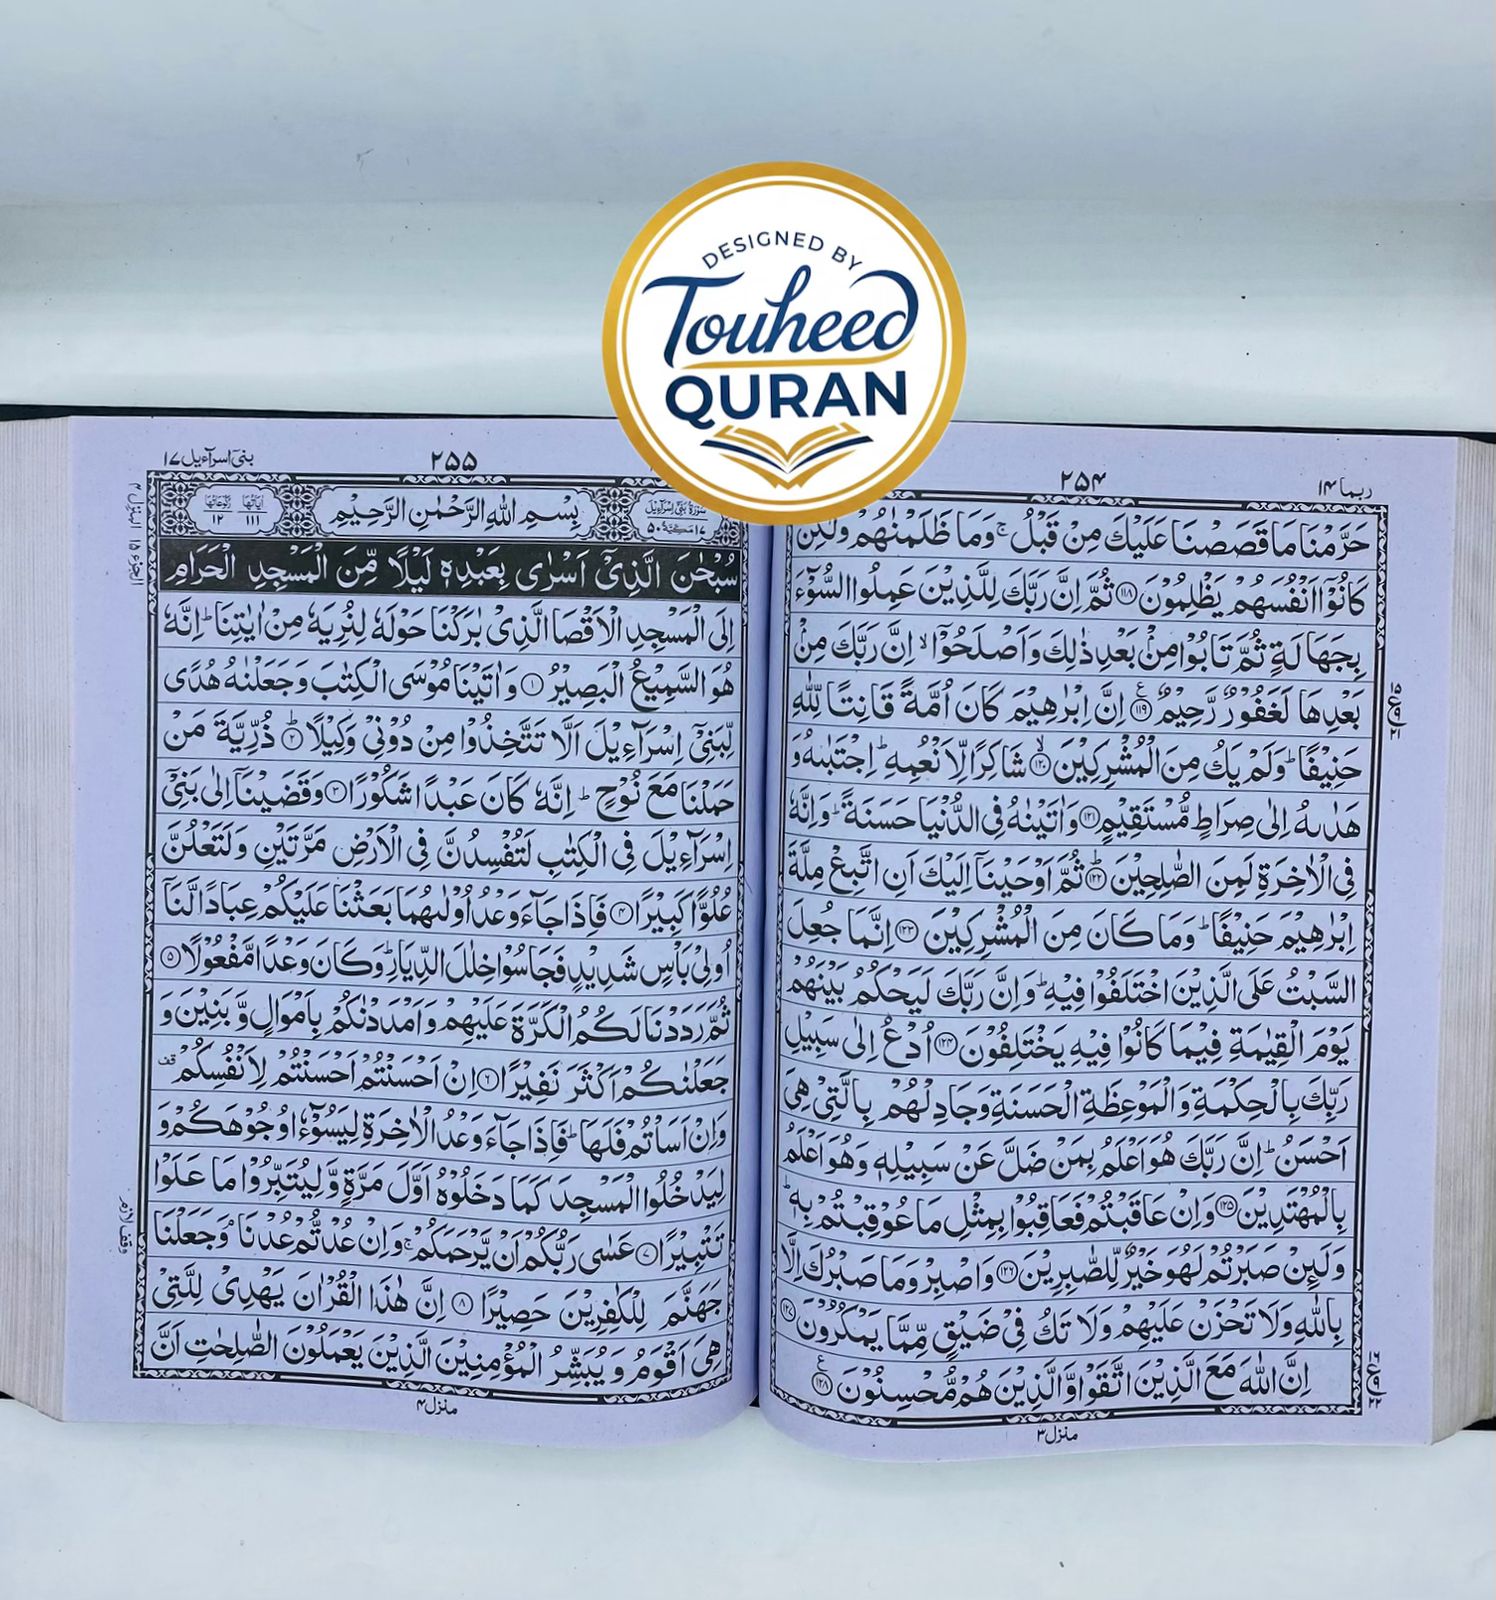 DESIGNED BY
Touheed
QURAN
ربما ١٤
٢٥٤
حَرَّمْنَا مَا قَصَصْنَا عَلَيْكَ مِنْ قَبْلُ ۚ وَمَا ظَلَمْنٰهُمْ وَلٰكِنْ
كَانُوْۤا اَنْفُسَهُمْ يَظْلِمُوْنَ ﴿۱۱۸﴾ ثُمَّ اِنَّ رَبَّكَ لِلَّذِيْنَ عَمِلُوا السُّوْٓءَ
بِجَهَالَةٍ ثُمَّ تَابُوْا مِنْۢ بَعْدِ ذٰلِكَ وَاَصْلَحُوْۤا ۙ اِنَّ رَبَّكَ مِنْۢ
بَعْدِهَا لَغَفُوْرٌ رَّحِيْمٌ ﴿۱۱۹﴾ اِنَّ اِبْرٰهِيْمَ كَانَ اُمَّةً قَانِتًا لِّلّٰهِ
حَنِيْفًا ؕ وَلَمْ يَكُ مِنَ الْمُشْرِكِيْنَ ﴿۱۲۰﴾ شَاكِرًا لِّاَنْعُمِهٖ ؕ اِجْتَبٰىهُ وَ
هَدٰىهُ اِلٰى صِرَاطٍ مُّسْتَقِيْمٍ ﴿۱۲۱﴾ وَاٰتَيْنٰهُ فِى الدُّنْيَا حَسَنَةً ؕ وَاِنَّهٗ
فِى الْاٰخِرَةِ لَمِنَ الصّٰلِحِيْنَ ﴿۱۲۲﴾ ثُمَّ اَوْحَيْنَاۤ اِلَيْكَ اَنِ اتَّبِعْ مِلَّةَ
اِبْرٰهِيْمَ حَنِيْفًا ؕ وَمَا كَانَ مِنَ الْمُشْرِكِيْنَ ﴿۱۲۳﴾ اِنَّمَا جُعِلَ
السَّبْتُ عَلَى الَّذِيْنَ اخْتَلَفُوْا فِيْهِ ؕ وَاِنَّ رَبَّكَ لَيَحْكُمُ بَيْنَهُمْ
يَوْمَ الْقِيٰمَةِ فِيْمَا كَانُوْا فِيْهِ يَخْتَلِفُوْنَ ﴿۱۲۴﴾ اُدْعُ اِلٰى سَبِيْلِ
رَبِّكَ بِالْحِكْمَةِ وَالْمَوْعِظَةِ الْحَسَنَةِ وَجَادِلْهُمْ بِالَّتِىْ هِىَ
اَحْسَنُ ؕ اِنَّ رَبَّكَ هُوَ اَعْلَمُ بِمَنْ ضَلَّ عَنْ سَبِيْلِهٖ وَهُوَ اَعْلَمُ
بِالْمُهْتَدِيْنَ ﴿۱۲۵﴾ وَاِنْ عَاقَبْتُمْ فَعَاقِبُوْا بِمِثْلِ مَا عُوْقِبْتُمْ بِهٖ ؕ
وَلَئِنْ صَبَرْتُمْ لَهُوَ خَيْرٌ لِّلصّٰبِرِيْنَ ﴿۱۲۶﴾ وَاصْبِرْ وَمَا صَبْرُكَ اِلَّا
بِاللّٰهِ وَلَا تَحْزَنْ عَلَيْهِمْ وَلَا تَكُ فِىْ ضَيْقٍ مِّمَّا يَمْكُرُوْنَ ﴿۱۲۷﴾
اِنَّ اللّٰهَ مَعَ الَّذِيْنَ اتَّقَوْا وَّالَّذِيْنَ هُمْ مُّحْسِنُوْنَ ﴿۱۲۸﴾
منزل ٣
بنیٓ اسرآءیل ١٧
٢٥٥
بِسْمِ اللّٰهِ الرَّحْمٰنِ الرَّحِيْمِ
اٰيَاتُهَا ١١١
رُكُوْعَاتُهَا ١٢
سُبْحٰنَ الَّذِىْۤ اَسْرٰى بِعَبْدِهٖ لَيْلًا مِّنَ الْمَسْجِدِ الْحَرَامِ
اِلَى الْمَسْجِدِ الْاَقْصَا الَّذِىْ بٰرَكْنَا حَوْلَهٗ لِنُرِيَهٗ مِنْ اٰيٰتِنَا ؕ اِنَّهٗ
هُوَ السَّمِيْعُ الْبَصِيْرُ ﴿۱﴾ وَاٰتَيْنَا مُوْسَى الْكِتٰبَ وَجَعَلْنٰهُ هُدًى
لِّبَنِىْۤ اِسْرَآءِيْلَ اَلَّا تَتَّخِذُوْا مِنْ دُوْنِىْ وَكِيْلًا ﴿۲﴾ ذُرِّيَّةَ مَنْ
حَمَلْنَا مَعَ نُوْحٍ ؕ اِنَّهٗ كَانَ عَبْدًا شَكُوْرًا ﴿۳﴾ وَقَضَيْنَاۤ اِلٰى بَنِىْۤ
اِسْرَآءِيْلَ فِى الْكِتٰبِ لَتُفْسِدُنَّ فِى الْاَرْضِ مَرَّتَيْنِ وَلَتَعْلُنَّ
عُلُوًّا كَبِيْرًا ﴿۴﴾ فَاِذَا جَآءَ وَعْدُ اُوْلٰىهُمَا بَعَثْنَا عَلَيْكُمْ عِبَادًا لَّنَاۤ
اُولِىْ بَاْسٍ شَدِيْدٍ فَجَاسُوْا خِلٰلَ الدِّيَارِ ؕ وَكَانَ وَعْدًا مَّفْعُوْلًا ﴿۵﴾
ثُمَّ رَدَدْنَا لَكُمُ الْكَرَّةَ عَلَيْهِمْ وَاَمْدَدْنٰكُمْ بِاَمْوَالٍ وَّبَنِيْنَ وَ
جَعَلْنٰكُمْ اَكْثَرَ نَفِيْرًا ﴿۶﴾ اِنْ اَحْسَنْتُمْ اَحْسَنْتُمْ لِاَنْفُسِكُمْ قف
وَاِنْ اَسَاْتُمْ فَلَهَا ؕ فَاِذَا جَآءَ وَعْدُ الْاٰخِرَةِ لِيَسُوْٓءٗا وُجُوْهَكُمْ وَ
لِيَدْخُلُوا الْمَسْجِدَ كَمَا دَخَلُوْهُ اَوَّلَ مَرَّةٍ وَّلِيُتَبِّرُوْا مَا عَلَوْا
تَتْبِيْرًا ﴿۷﴾ عَسٰى رَبُّكُمْ اَنْ يَّرْحَمَكُمْ ۚ وَاِنْ عُدْتُّمْ عُدْنَا ۘ وَجَعَلْنَا
جَهَنَّمَ لِلْكٰفِرِيْنَ حَصِيْرًا ﴿۸﴾ اِنَّ هٰذَا الْقُرْاٰنَ يَهْدِىْ لِلَّتِىْ
هِىَ اَقْوَمُ وَيُبَشِّرُ الْمُؤْمِنِيْنَ الَّذِيْنَ يَعْمَلُوْنَ الصّٰلِحٰتِ اَنَّ
وقف لازم
منزل ٤